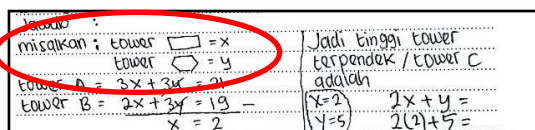 Jawab :
misalkan : tower = x
tower = y
tower A = 3x + 3y = 21
tower B = 2x + 3y = 19 -
x = 2
Jadi tinggi tower
terpendek / tower C
adalah
x=2 2x + y =
y=5 2(2)+5 =